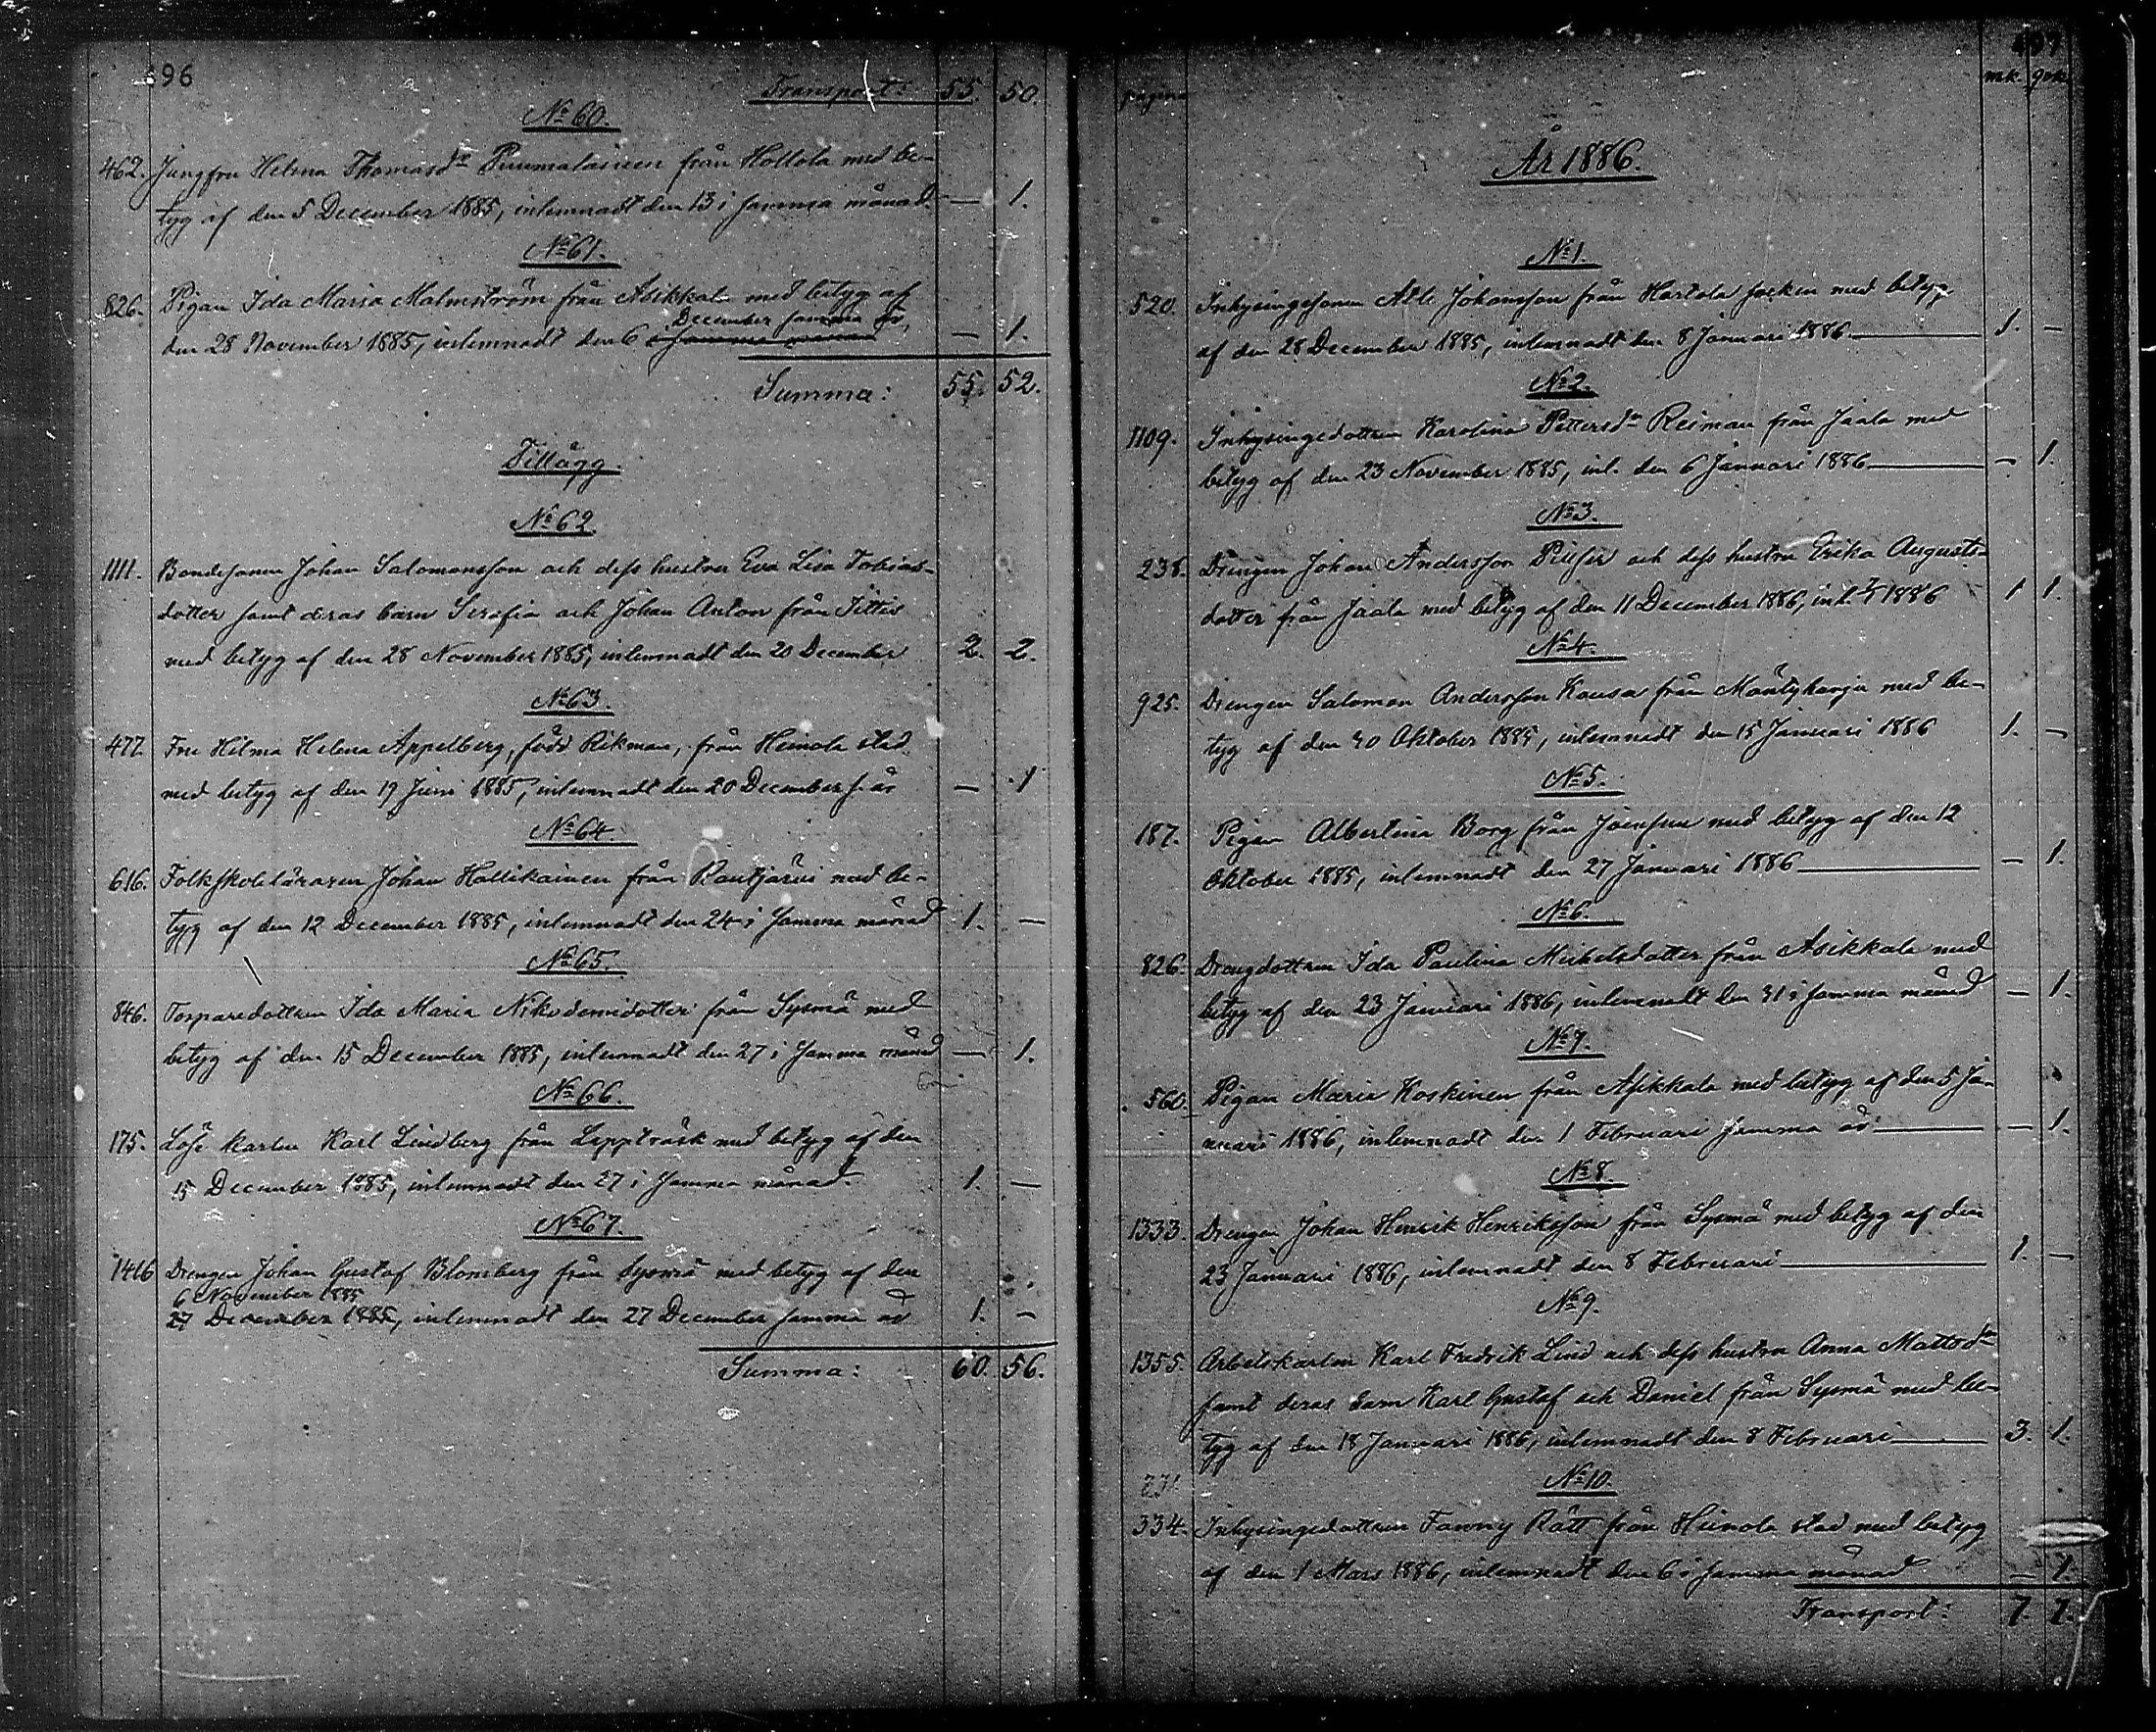 96
Transport: 55. 50.
No 60.
462. Jungfru Helena Thomasdr Pummalainen från Hollola med be-
tyg af den 5 December 1885, inlemnadt den 13 i samma månad. — 1.
No 61.
826. Pigan Ida Maria Malmström från Asikkala med betyg af
December samma år,
den 28 November 1885, inlemnadt den 6 i samma månad — 1.
Summa: 55. 52.
Tillägg.
No 62.
1111. Bondesonen Johan Salomonsson och dess hustru Eva Lisa Tobias-
dotter samt deras barn Serafia och Johan Anton från Iittis
med betyg af den 28 November 1885, inlemnadt den 20 December 2. 2.
No 63.
477. Fru Hilma Helena Appelberg, född Rikman, från Heinola stad
med betyg af den 19 Juni 1885, inlemnadt den 20 December s. år — 1
No 64.
616. Folkskoleläraren Johan Hallikainen från Rautjärvi med be-
tyg af den 12 December 1885, inlemnadt den 24 i samma månad 1. —
No 65.
846. Torparedottren Ida Maria Nikodemidotter från Sysmä med
betyg af den 15 December 1885, inlemnadt den 27 i samma månad — 1.
No 66.
175. Löse karlen Karl Lindberg från Lappträsk med betyg af den
15 December 1885, inlemnadt den 27 i samma månad 1. —
No 67.
1416 Drengen Johan Gustaf Blomberg från Sysmä med betyg af den
6 November 1885
27 December 1885, inlemnadt den 27 December samma år 1. —
Summa: 60. 56.
pagina mk. qvk.
År 1886.
No 1.
520. Inhysingesonen Atle Johansson från Hartola socken med betyg
af den 28 December 1885, inlemnadt den 8 Januari 1886 — 1. —
No 2.
1109. Inhysingedottren Karolina Pettersdr Reiman från Jaala med
betyg af den 23 November 1885, inl. den 6 Januari 1886 — — 1.
No 3.
238. Drengen Johan Andersson och dess hustru Erika Augusts-
dotter från Jaala med betyg af den 11 December 1886, inl. 1886 1 1.
No 4.
925. Drengen Salomon Andersson Kausa från Mäntyharju med be-
tyg af den 30 Oktober 1885, inlemnadt den 15 Januari 1886 1. —
No 5.
187. Pigan Albertina Borg från Joensuu med betyg af den 12
Oktober 1885, inlemnadt den 27 Januari 1886 — — 1.
No 6.
826. Drengdottren Ida Paulina Mickelsdotter från Asikkala med
betyg af den 23 Januari 1886, inlemnadt den 31 i samma månad — 1.
No 7.
560. Pigan Maria Koskinen från Asikkala med betyg af den 5 Ja-
nuari 1886, inlemnadt den 1 Februari samma år — — 1.
No 8.
1333. Drengen Johan Henrik Henriksson från Sysmä med betyg af den
23 Januari 1886, inlemnadt den 8 Februari — 1. —
No 9.
1355. Arbetskarlen Karl Fredrik Lind och dess hustru Anna Mattsdr
samt deras barn Karl Gustaf och Daniel från Sysmä med be-
tyg af den 18 Januari 1886, inlemnadt den 8 Februari — 3. 1.
231
No 10.
334. Inhysingedottren Fanny Rätt från Heinola stad med betyg
af den 1 Mars 1886, inlemnadt den 6 i samma månad — 1.
Transport: 7. 7.